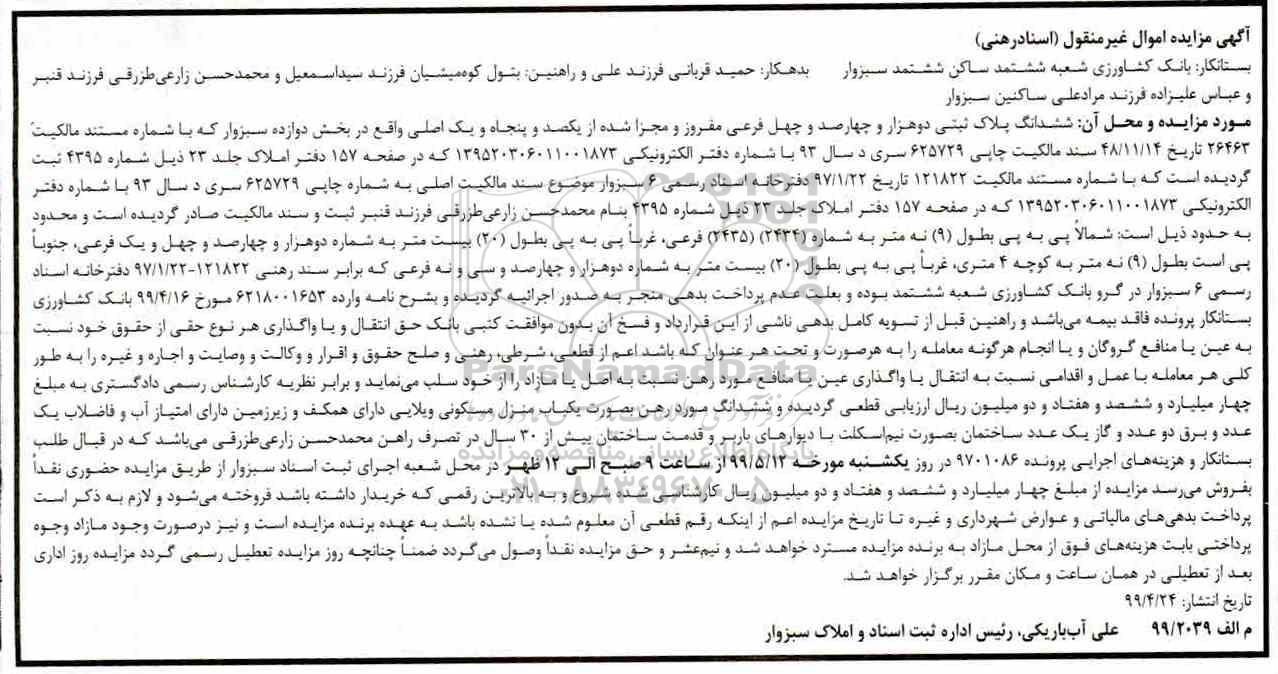 آگهی مزایده اموال غیرمنقول (اسنادرهنی)
بستانکار: بانک کشاورزی شعبه ششتمد ساکن ششتمد سبزوار بدهکار: حمید قربانی فرزند علی و راهنین: بتول کوه‌میشیان فرزند سیداسمعیل و محمدحسن زارعی‌طزرقی فرزند قنبر
و عباس علیزاده فرزند مرادعلی ساکنین سبزوار
مورد مزایده و محل آن: ششدانگ پلاک ثبتی دوهزار و چهارصد و چهل فرعی مفروز و مجزا شده از یکصد و پنجاه و یک اصلی واقع در بخش دوازده سبزوار که با شماره مستند مالکیت
۲۶۴۶۳ تاریخ ۴۸/۱۱/۱۴ سند مالکیت چاپی ۶۲۵۷۲۹ سری د سال ۹۳ با شماره دفتر الکترونیکی ۱۳۹۵۲۰۳۰۶۰۱۱۰۰۱۸۷۳ که در صفحه ۱۵۷ دفتر املاک جلد ۲۳ ذیل شماره ۴۳۹۵ ثبت
گردیده است که با شماره مستند مالکیت ۱۲۱۸۲۲ تاریخ ۹۷/۱/۲۲ دفترخانه اسناد رسمی ۶ سبزوار موضوع سند مالکیت اصلی به شماره چاپی ۶۲۵۷۲۹ سری د سال ۹۳ با شماره دفتر
الکترونیکی ۱۳۹۵۲۰۳۰۶۰۱۱۰۰۱۸۷۳ که در صفحه ۱۵۷ دفتر املاک جلد ۲۳ ذیل شماره ۴۳۹۵ بنام محمدحسن زارعی‌طزرقی فرزند قنبر ثبت و سند مالکیت صادر گردیده است و محدود
به حدود ذیل است: شمالاً پی به پی بطول (۹) نه متر به شماره (۲۴۳۴) (۲۴۳۵) فرعی، غرباً پی به پی بطول (۲۰) بیست متر به شماره دوهزار و چهارصد و چهل و یک فرعی، جنوباً
پی است بطول (۹) نه متر به کوچه ۴ متری، غرباً پی به پی بطول (۲۰) بیست متر به شماره دوهزار و چهارصد و سی و نه فرعی که برابر سند رهنی ۱۲۱۸۲۲-۹۷/۱/۲۲ دفترخانه اسناد
رسمی ۶ سبزوار در گرو بانک کشاورزی شعبه ششتمد بوده و بعلت عدم پرداخت بدهی منجر به صدور اجرائیه گردیده و بشرح نامه وارده ۶۲۱۸۰۰۱۶۵۳ مورخ ۹۹/۴/۱۶ بانک کشاورزی
بستانکار پرونده فاقد بیمه می‌باشد و راهنین قبل از تسویه کامل بدهی ناشی از این قرارداد و فسخ آن بدون موافقت کتبی بانک حق انتقال و یا واگذاری هر نوع حقی از حقوق خود نسبت
به عین یا منافع گروگان و یا انجام هرگونه معامله را به هرصورت و تحت هر عنوان که باشد اعم از قطعی، شرطی، رهنی و صلح حقوق و اقرار و وکالت و وصایت و اجاره و غیره را به طور
کلی هر معامله با عمل و اقدامی نسبت به انتقال یا واگذاری عین یا منافع مورد رهن نسبت به اصل یا مازاد را از خود سلب می‌نماید و برابر نظریه کارشناس رسمی دادگستری به مبلغ
چهار میلیارد و ششصد و هفتاد و دو میلیون ریال ارزیابی قطعی گردیده و ششدانگ مورد رهن بصورت یکباب منزل مسکونی ویلایی دارای همکف و زیرزمین دارای امتیاز آب و فاضلاب یک
عدد و برق دو عدد و گاز یک عدد ساختمان بصورت نیم‌اسکلت با دیوارهای باربر و قدمت ساختمان بیش از ۳۰ سال در تصرف راهن محمدحسن زارعی‌طزرقی می‌باشد که در قبال طلب
بستانکار و هزینه‌های اجرایی پرونده ۹۷۰۱۰۸۶ در روز یکشنبه مورخه ۹۹/۵/۱۲ از ساعت ۹ صبح الی ۱۲ ظهر در محل شعبه اجرای ثبت اسناد سبزوار از طریق مزایده حضوری نقداً
بفروش می‌رسد مزایده از مبلغ چهار میلیارد و ششصد و هفتاد و دو میلیون ریال کارشناسی شده شروع و به بالاترین رقمی که خریدار داشته باشد فروخته می‌شود و لازم به ذکر است
پرداخت بدهی‌های مالیاتی و عوارض شهرداری و غیره تا تاریخ مزایده اعم از اینکه رقم قطعی آن معلوم شده یا نشده باشد به عهده برنده مزایده است و نیز درصورت وجود مازاد وجوه
پرداختی بابت هزینه‌های فوق از محل مازاد به برنده مزایده مسترد خواهد شد و نیم‌عشر و حق مزایده نقداً وصول می‌گردد ضمناً چنانچه روز مزایده تعطیل رسمی گردد مزایده روز اداری
بعد از تعطیلی در همان ساعت و مکان مقرر برگزار خواهد شد.
تاریخ انتشار: ۹۹/۴/۲۴
م الف ۹۹/۲۰۳۹ علی آب‌باریکی، رئیس اداره ثبت اسناد و املاک سبزوار
ParsNamadData
پایگاه اطلاع رسانی مناقصه و مزایده
۰۲۱-۸۸۳۴۹۶۷۰-۵